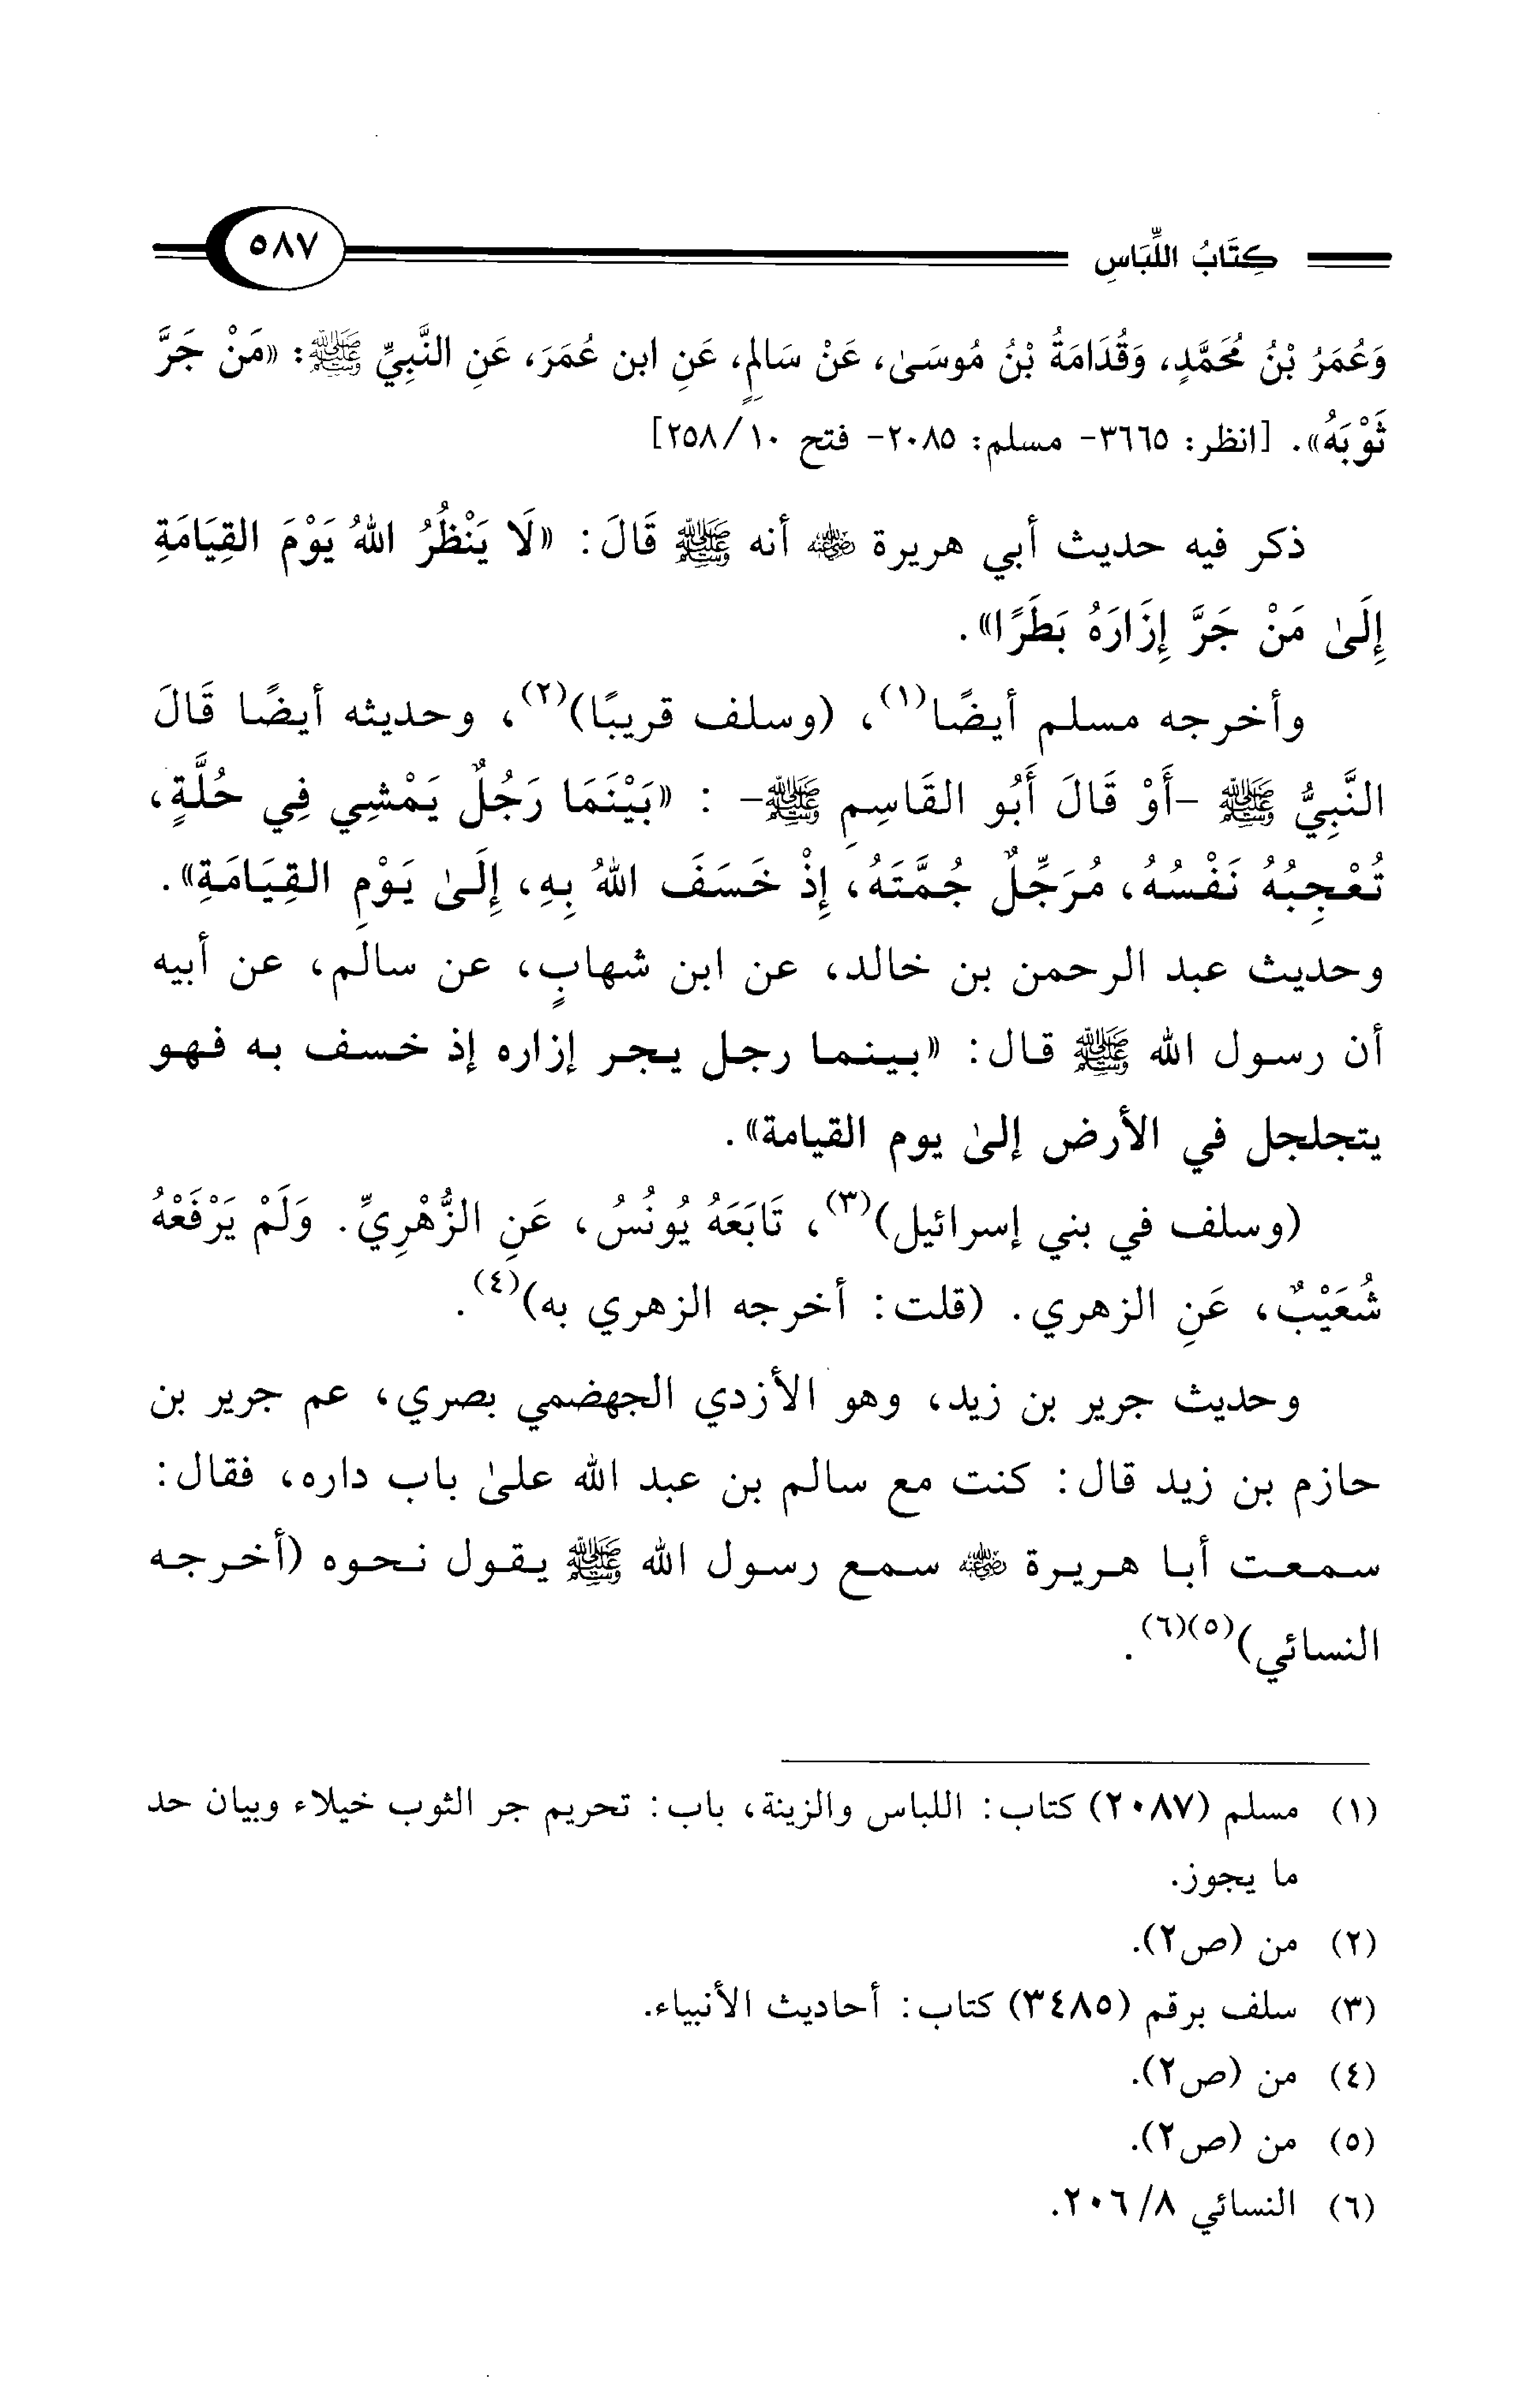 كِتَابُ اللِّبَاسِ ٥٨٧
وَعُمَرُ بْنُ مُحَمَّدٍ، وَقُدَامَةُ بْنُ مُوسَىٰ، عَنْ سَالِمٍ، عَنِ ابن عُمَرَ، عَنِ النَّبِيِّ ﷺ: «مَنْ جَرَّ
ثَوْبَهُ». [انظر: ٣٦٦٥- مسلم: ٢٠٨٥- فتح ١٠/٢٥٨]
ذكر فيه حديث أبي هريرة ﵁ أنه ﷺ قَالَ: «لَا يَنْظُرُ اللهُ يَوْمَ القِيَامَةِ
إِلَىٰ مَنْ جَرَّ إِزَارَهُ بَطَرًا».
وأخرجه مسلم أيضًا(١)، (وسلف قريبًا)(٢)، وحديثه أيضًا قَالَ
النَّبِيُّ ﷺ -أَوْ قَالَ أَبُو القَاسِمِ ﷺ- : «بَيْنَمَا رَجُلٌ يَمْشِي فِي حُلَّةٍ،
تُعْجِبُهُ نَفْسُهُ، مُرَجِّلٌ جُمَّتَهُ، إِذْ خَسَفَ اللهُ بِهِ، إِلَىٰ يَوْمِ القِيَامَةِ».
وحديث عبد الرحمن بن خالد، عن ابن شهابٍ، عن سالم، عن أبيه
أن رسول الله ﷺ قال: «بينما رجل يجر إزاره إذ خسف به فهو
يتجلجل في الأرض إلىٰ يوم القيامة».
(وسلف في بني إسرائيل)(٣)، تَابَعَهُ يُونُسُ، عَنِ الزُّهْرِيِّ. وَلَمْ يَرْفَعْهُ
شُعَيْبٌ، عَنِ الزهري. (قلت: أخرجه الزهري به)(٤).
وحديث جرير بن زيد، وهو الأزدي الجهضمي بصري، عم جرير بن
حازم بن زيد قال: كنت مع سالم بن عبد الله علىٰ باب داره، فقال:
سمعت أبا هريرة ﵁ سمع رسول الله ﷺ يقول نحوه (أخرجه
النسائي)(٥)(٦).
(١) مسلم (٢٠٨٧) كتاب: اللباس والزينة، باب: تحريم جر الثوب خيلاء وبيان حد
ما يجوز.
(٢) من (ص٢).
(٣) سلف برقم (٣٤٨٥) كتاب: أحاديث الأنبياء.
(٤) من (ص٢).
(٥) من (ص٢).
(٦) النسائي ٨/ ٢٠٦.